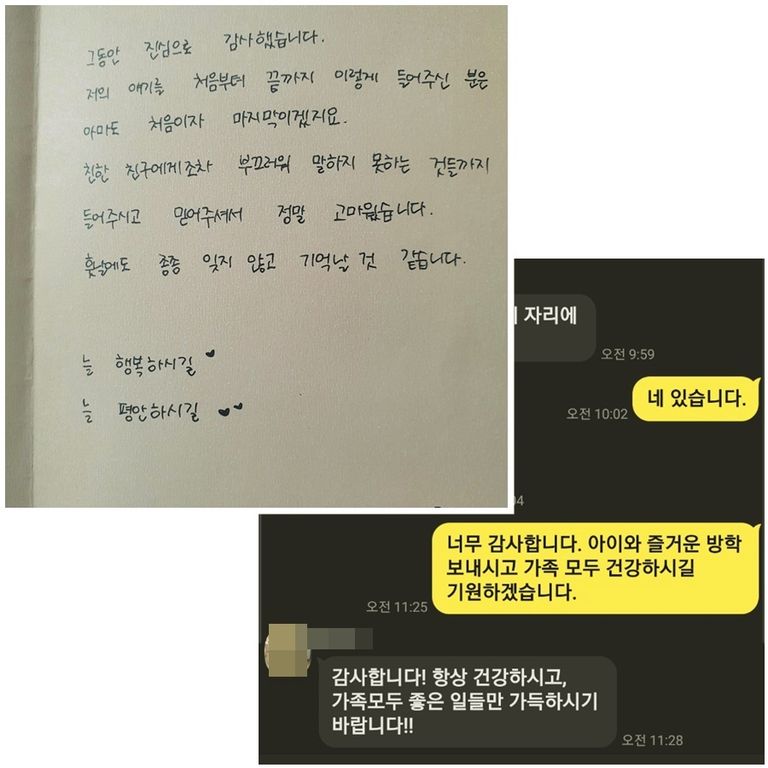 그동안 진심으로 감사했습니다.
저의 얘기를 처음부터 끝까지 이렇게 들어주신 분은
아마도 처음이자 마지막이겠지요.
친한 친구에게조차 부끄러워 말하지 못하는 것들까지
들어주시고 믿어주셔서 정말 고마웠습니다.
훗날에도 종종 잊지 않고 기억날 것 같습니다.
늘 행복하시길
늘 평안하시길
자리에
오전 9:59
네 있습니다.
오전 10:02
너무 감사합니다. 아이와 즐거운 방학
보내시고 가족 모두 건강하시길
기원하겠습니다.
오전 11:25
감사합니다! 항상 건강하시고,
가족모두 좋은 일들만 가득하시기
바랍니다!!
오전 11:28